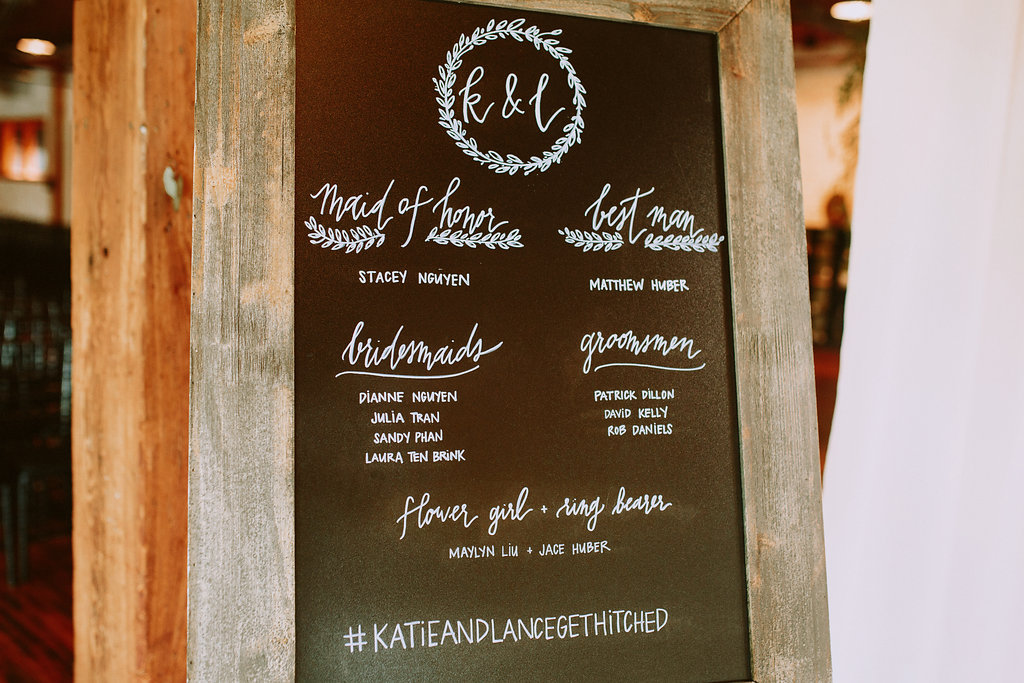 k & l
maid of honor
STACEY NGUYEN
best man
MATTHEW HUBER
bridesmaids
DIANNE NGUYEN
JULIA TRAN
SANDY PHAN
LAURA TEN BRINK
groomsmen
PATRICK DILLON
DAVID KELLY
ROB DANIELS
flower girl + ring bearer
MAYLYN LIU + JACE HUBER
#KATIEANDLANCEGETHITCHED